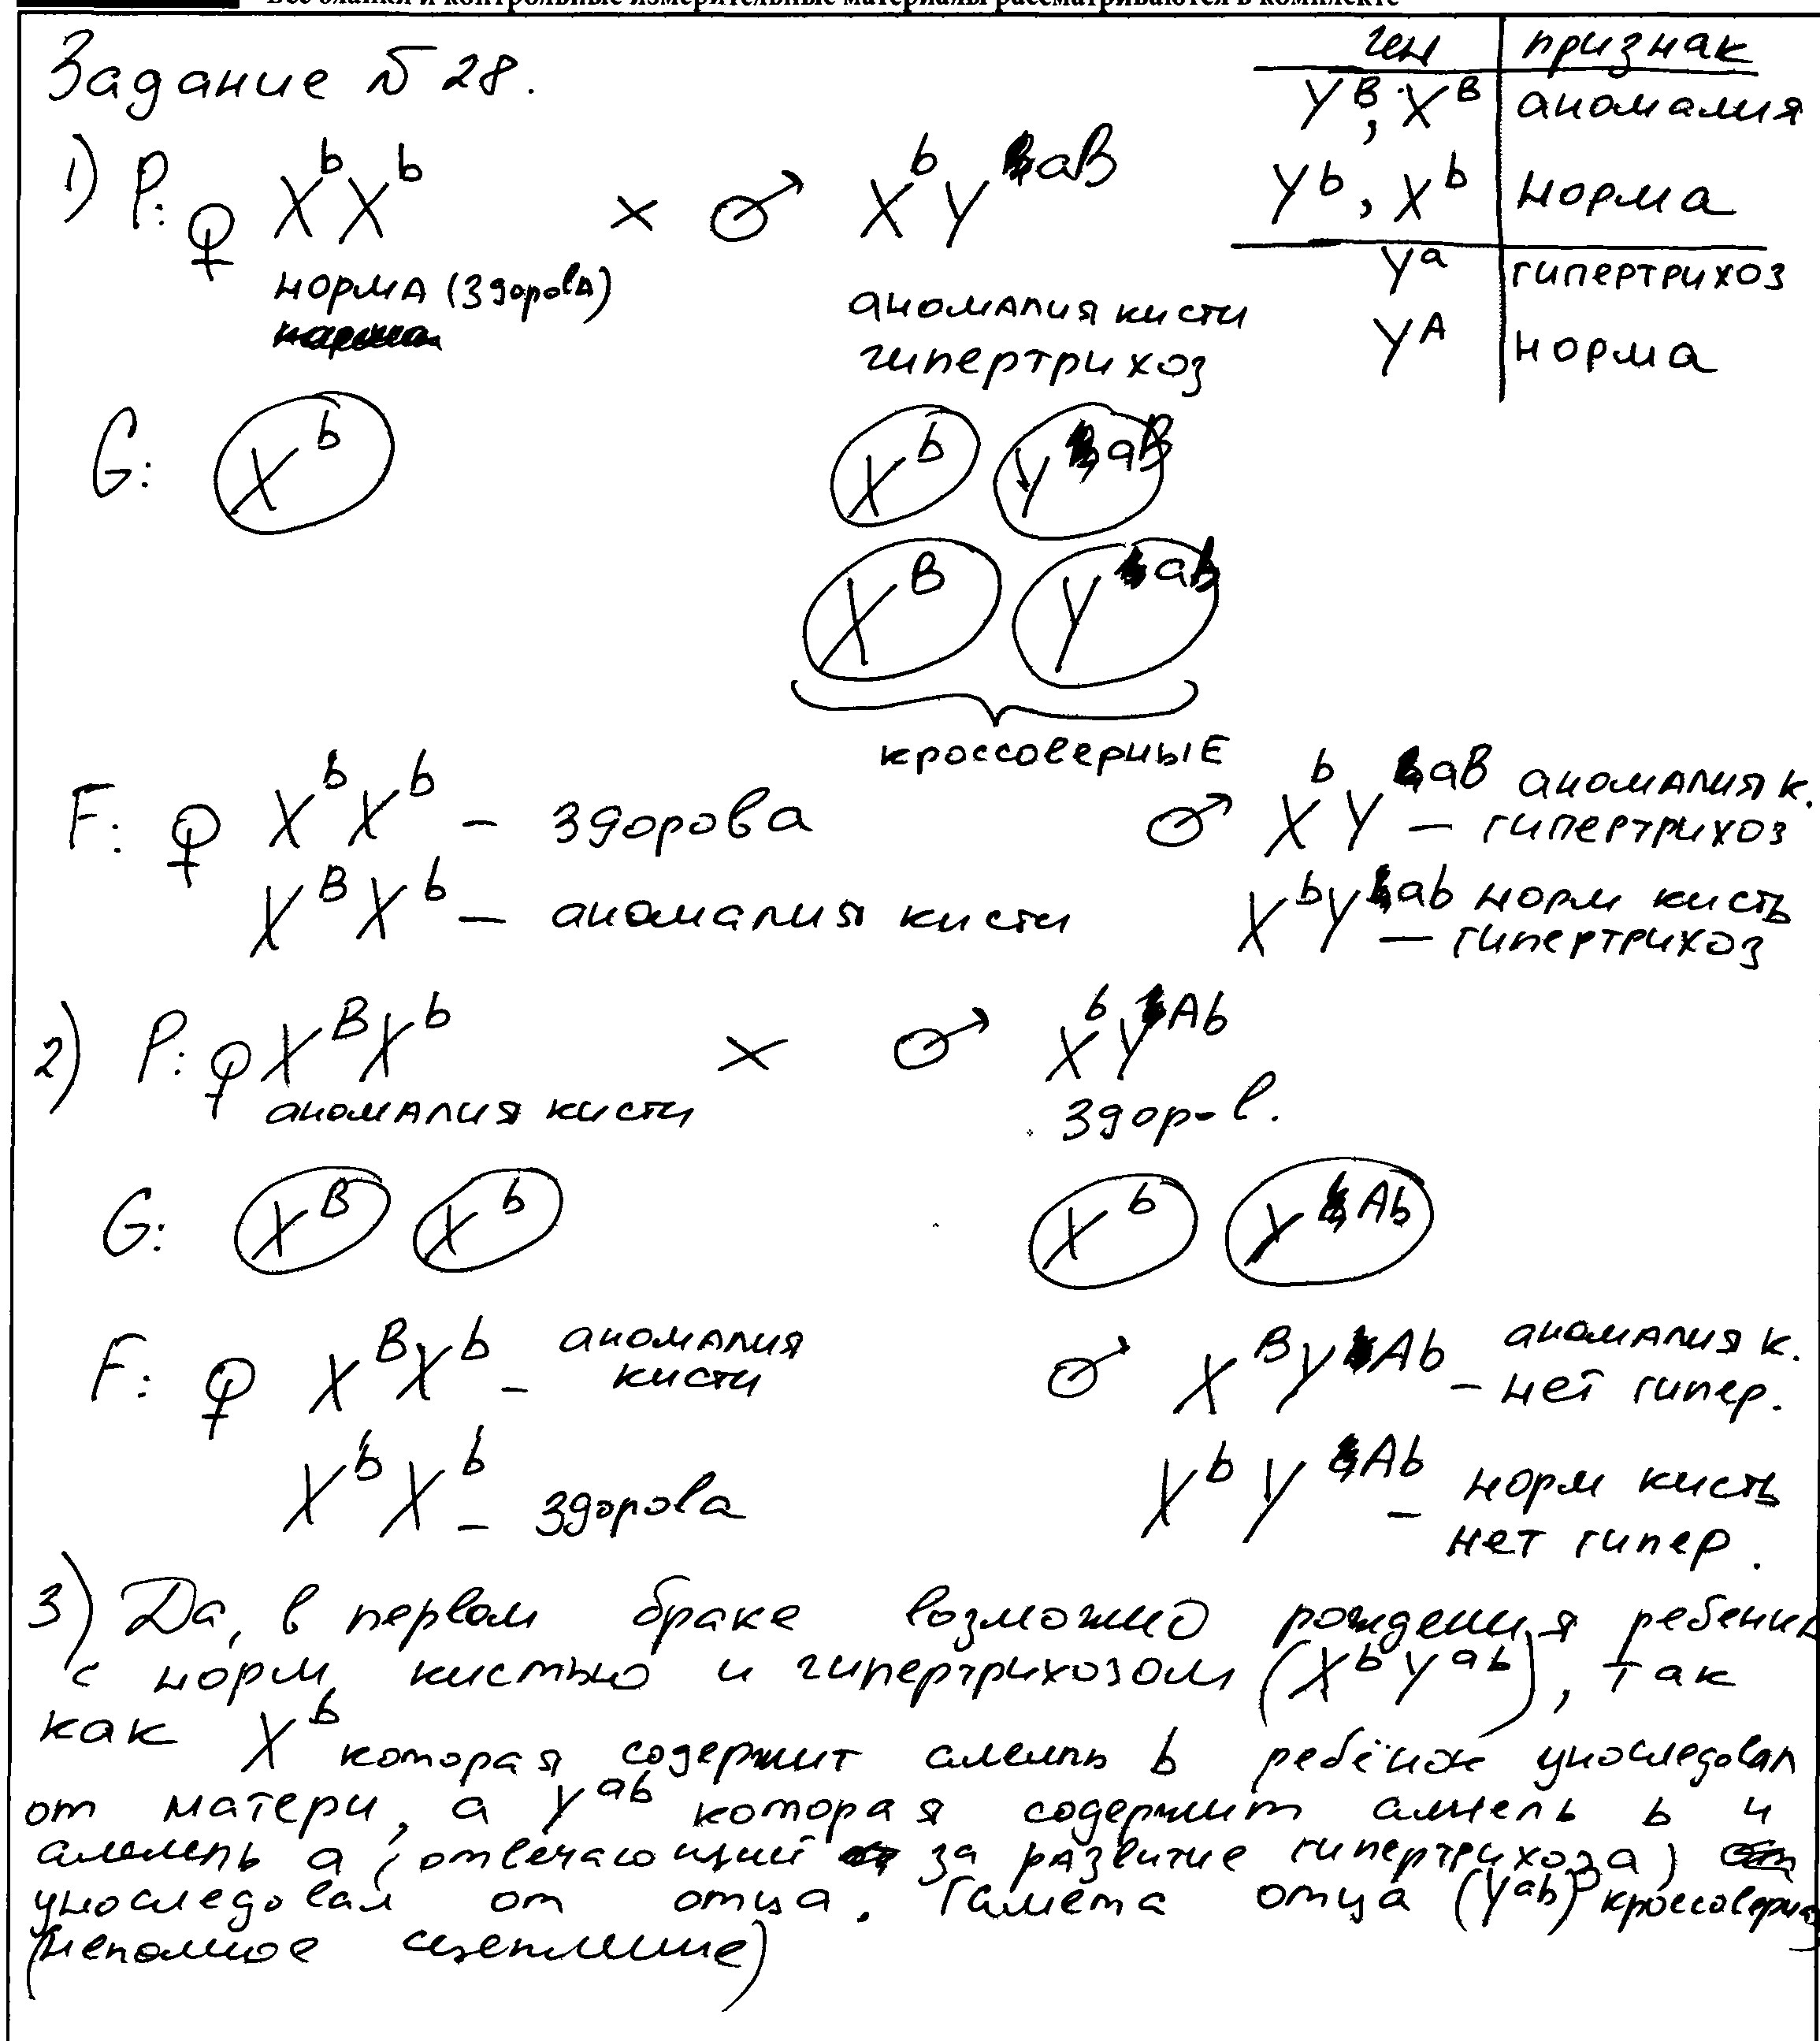 Все бланки и контрольные измерительные материалы рассматриваются в комплекте
Задание № 28.
ген | признак
Y^B, X^B | аномалия
Y^b, X^b | норма
Y^a | гипертрихоз
Y^A | норма
1) P: ♀ X^b X^b × ♂ X^b Y^aB
норма (здорова)
аномалия кисти
гипертрихоз
G: X^b X^b Y^aB
X^B Y^ab
кроссоверные
F: ♀ X^b X^b – здорова ♂ X^b Y^aB аномалия к.
– гипертрихоз
X^B X^b – аномалия кисти X^b Y^ab норм кисть
– гипертрихоз
2) P: ♀ X^B X^b × ♂ X^b Y^Ab
аномалия кисти здоров.
G: X^B X^b X^b Y^Ab
F: ♀ X^B X^b – аномалия кисти ♂ X^B Y^Ab – аномалия к.
нет гипер.
X^b X^b – здорова X^b Y^Ab – норм кисть
нет гипер.
3) Да, в первом браке возможно рождения ребенка
с норм кистью и гипертрихозом (X^b Y^ab), так
как X^b которая содержит аллель b ребёнок унаследовал
от матери, а Y^ab которая содержит аллель b и
аллель a (отвечающий за развитие гипертрихоза)
унаследовал от отца. Гамета отца (Y^ab) кроссоверная
(неполное сцепление)